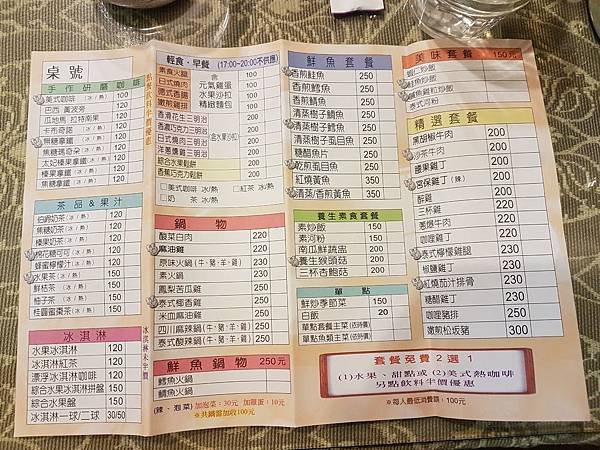 桌號
手作研磨咖啡
美式咖啡(冰/熱) 100
巴西 黃波旁
瓜地馬 拉特南果
卡布奇諾(冰/熱)
焦糖拿鐵(冰/熱) 120
焦糖瑪奇朵(冰/熱) 120
太妃榛果拿鐵(冰/熱)
榛果拿鐵(冰/熱)
焦糖拿鐵(冰/熱)
茶品&果汁
伯爵奶茶(冰/熱) 120
焦糖奶茶(冰/熱) 120
榛果奶茶(冰/熱) 120
棉花糖可可(冰/熱) 120
蜂蜜檸檬汁(冰/熱) 120
水果茶(冰/熱) 120
鮮桔茶(冰/熱) 120
柚子茶(冰/熱) 120
桂圓蜜棗茶(冰/熱) 120
冰淇淋
水果冰淇淋 120
冰淇淋紅茶 120
漂浮冰淇淋咖啡 120
綜合水果冰淇淋拼盤 150
綜合水果盤 150
冰淇淋一球/二球 30/50
點餐飲料半價優惠
冰淇淋未半價
輕食・早餐 (17:00~20:00不供應)
素食火腿 100
日式燒肉 100
德式香腸 100
嫩煎雞排 100
含
元氣雞蛋
水果沙拉
精緻麵包
香滑花生三明治
香濃巧克力三明治
日式燒肉三明治
洋蔥燻雞三明治
含水果沙拉
綜合水果鬆餅
香蕉巧克力鬆餅
□美式咖啡 冰/熱 □紅茶 冰/熱
□奶 茶 冰/熱
鍋物
酸菜白肉 220
麻油雞 220
原味火鍋(牛、豬、雞) 230
素火鍋 230
鳳梨苦瓜雞 250
泰式椰香雞 250
米血麻油雞 250
四川麻辣鍋(牛、豬、羊、雞) 250
泰式酸辣鍋(牛、豬、羊、雞) 250
鮮魚火鍋 250元
鱈魚火鍋
鯛魚火鍋
(辣、泡菜) 加泡菜:30元 加雞蛋:10元
※共鍋需加收100元
鮮魚套餐
香煎鮭魚 250
香煎鱈魚 250
香煎鯛魚 250
清蒸樹子鯛魚 250
清蒸樹子鱈魚 250
清蒸樹子虱目魚 250
糖醋魚片 250
乾煎虱目魚 250
紅燒黃魚 350
清蒸/香煎黃魚 350
養生素食套餐
素炒飯 150
素河粉 150
南瓜鮮蔬盅 200
養生猴頭菇 200
三杯杏鮑菇 200
單點
鮮炒季節菜 150
白飯 20
單點套餐主菜(依時價)
單點魚類主菜(依時價)
美味套餐 150元
蝦仁炒飯
鮭魚炒飯
鹹魚雞粒炒飯
泰式河粉
精選套餐
黑胡椒牛肉 200
沙茶牛肉 200
腰果雞丁 200
宮保雞丁(辣) 200
醉雞 200
三杯雞 200
蔥爆牛肉 200
咖哩雞丁 200
泰式檸檬雞腿 230
椒鹽雞丁 230
紅燒茄汁排骨 230
糖醋雞丁 230
咖哩豬排 250
嫩煎松坂豬 300
套餐免費2選1
(1)水果、甜點或(2)美式熱咖啡
另點飲料半價優惠
※每人最低消費額:100元